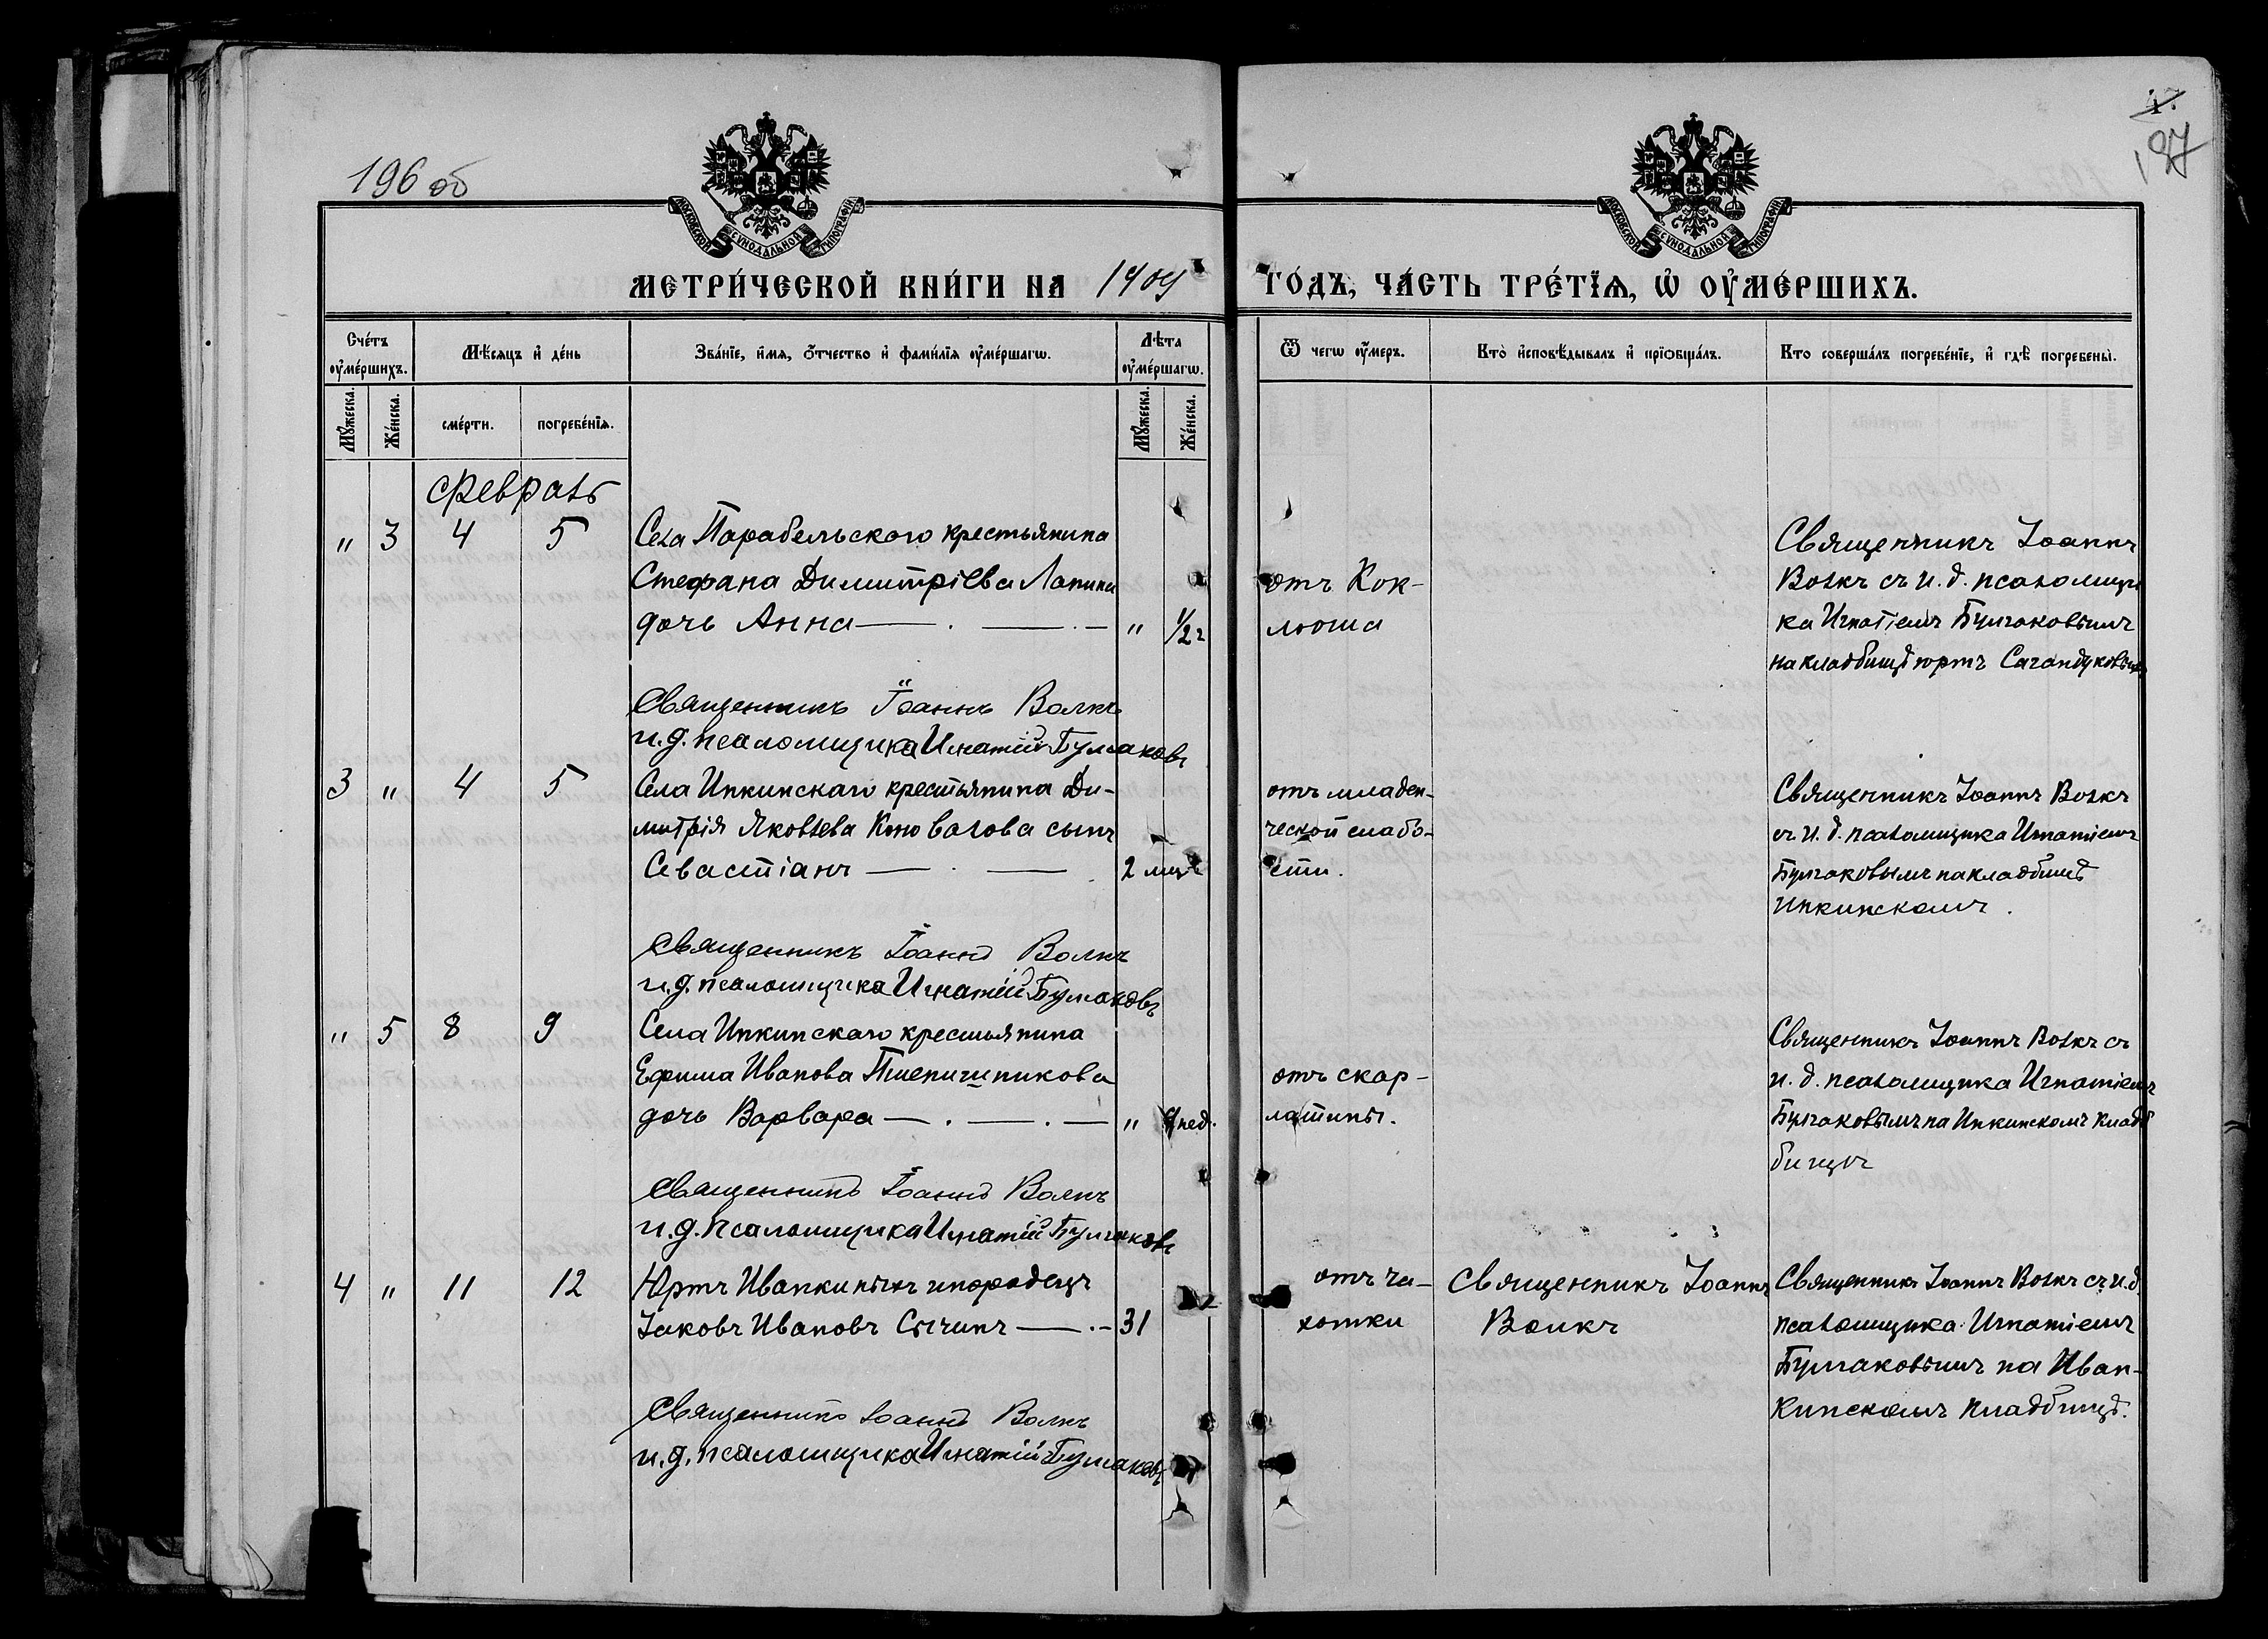 196 об
47
197
МОСКОВСКОЙ СѴНОДАЛЬНОЙ ТИПОГРАФІИ
МОСКОВСКОЙ СѴНОДАЛЬНОЙ ТИПОГРАФІИ
МЕТРИ́ЧЕСКОЙ КНИ́ГИ НА 1909 ГО́ДЪ, ЧА́СТЬ ТРЕ́ТЇѦ, Ѡ ОУ҆МЕ́РШИХЪ.
Сче́тъ оу҆ме́ршихъ.
Мѣ́сяцъ и҆ де́нь
Зва́нїе, и҆́мя, ѻ҆́тчество и҆ фами́лїя оу҆ме́ршагѡ.
Лѣ́та оу҆ме́ршагѡ.
Ѿ чегѡ оу҆́меръ.
Кто̀ и҆сповѣ́дывалъ и҆ прїѡбща́лъ.
Кто соверша́лъ погребе́нїе, и҆ гдѣ̀ погребены̀.
Му́жеска.
Же́нска.
сме́рти.
погребе́нїя.
Му́жеска.
Же́нска.
Февраль
" 3 4 5 Села Парабельского крестьянина
Стефана Димитріева Лапина
дочь Анна " 1/2 г
отъ Кок-
люша
Священникъ Іоаннъ
Волкъ съ и. д. псаломщи
ка Игнатіемъ Булгаковымъ
на кладбищѣ юртъ
Священникъ Іоаннъ Волкъ
и. д. псаломщика Игнатій Булгаковъ
3 " 4 5 Села Инкинскаго крестьянина Ди-
митрія Яковлева Коновалова сынъ
Севастіанъ 2 мцъ
отъ младен-
ческой слабо-
сти.
Священникъ Іоаннъ Волкъ
съ и. д. псаломщика Игнатіемъ
Булгаковымъ на кладбищѣ
Инкинскомъ.
Священникъ Іоаннъ Волкъ
и. д. псаломщика Игнатій Булгаковъ
" 5 8 9 Села Инкинскаго крестьянина
Ефима Иванова Пшеничникова
дочь Варвара " нед.
отъ скар-
латины.
Священникъ Іоаннъ Волкъ съ
и. д. псаломщика Игнатіемъ
Булгаковымъ на Инкинскомъ клад
бищѣ
Священникъ Іоаннъ Волкъ
и. д. псаломщика Игнатій Булгаковъ
4 " 11 12 Юртъ Иванкиныхъ инородецъ
Іаковъ Ивановъ Сычинъ 31
отъ ча-
хотки
Священникъ Іоаннъ
Волкъ
Священникъ Іоаннъ Волкъ съ и. д.
псаломщика Игнатіемъ
Булгаковымъ на Иван-
кинскомъ кладбищѣ.
Священникъ Іоаннъ Волкъ
и. д. псаломщика Игнатій Булгаковъ